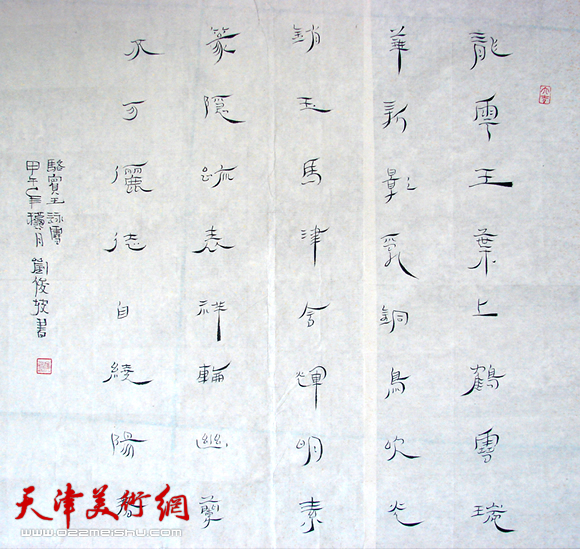 龍雲玉葉上鶴雪瑞
華新影亂銅烏吹光
銷玉馬津含輝明素
篆隱跡表祥輪幽蘭
不可儷徒自綾陽春
駱賓王詠雪
甲午年月 劉俊坡書
天津美術網
www.022meishu.com